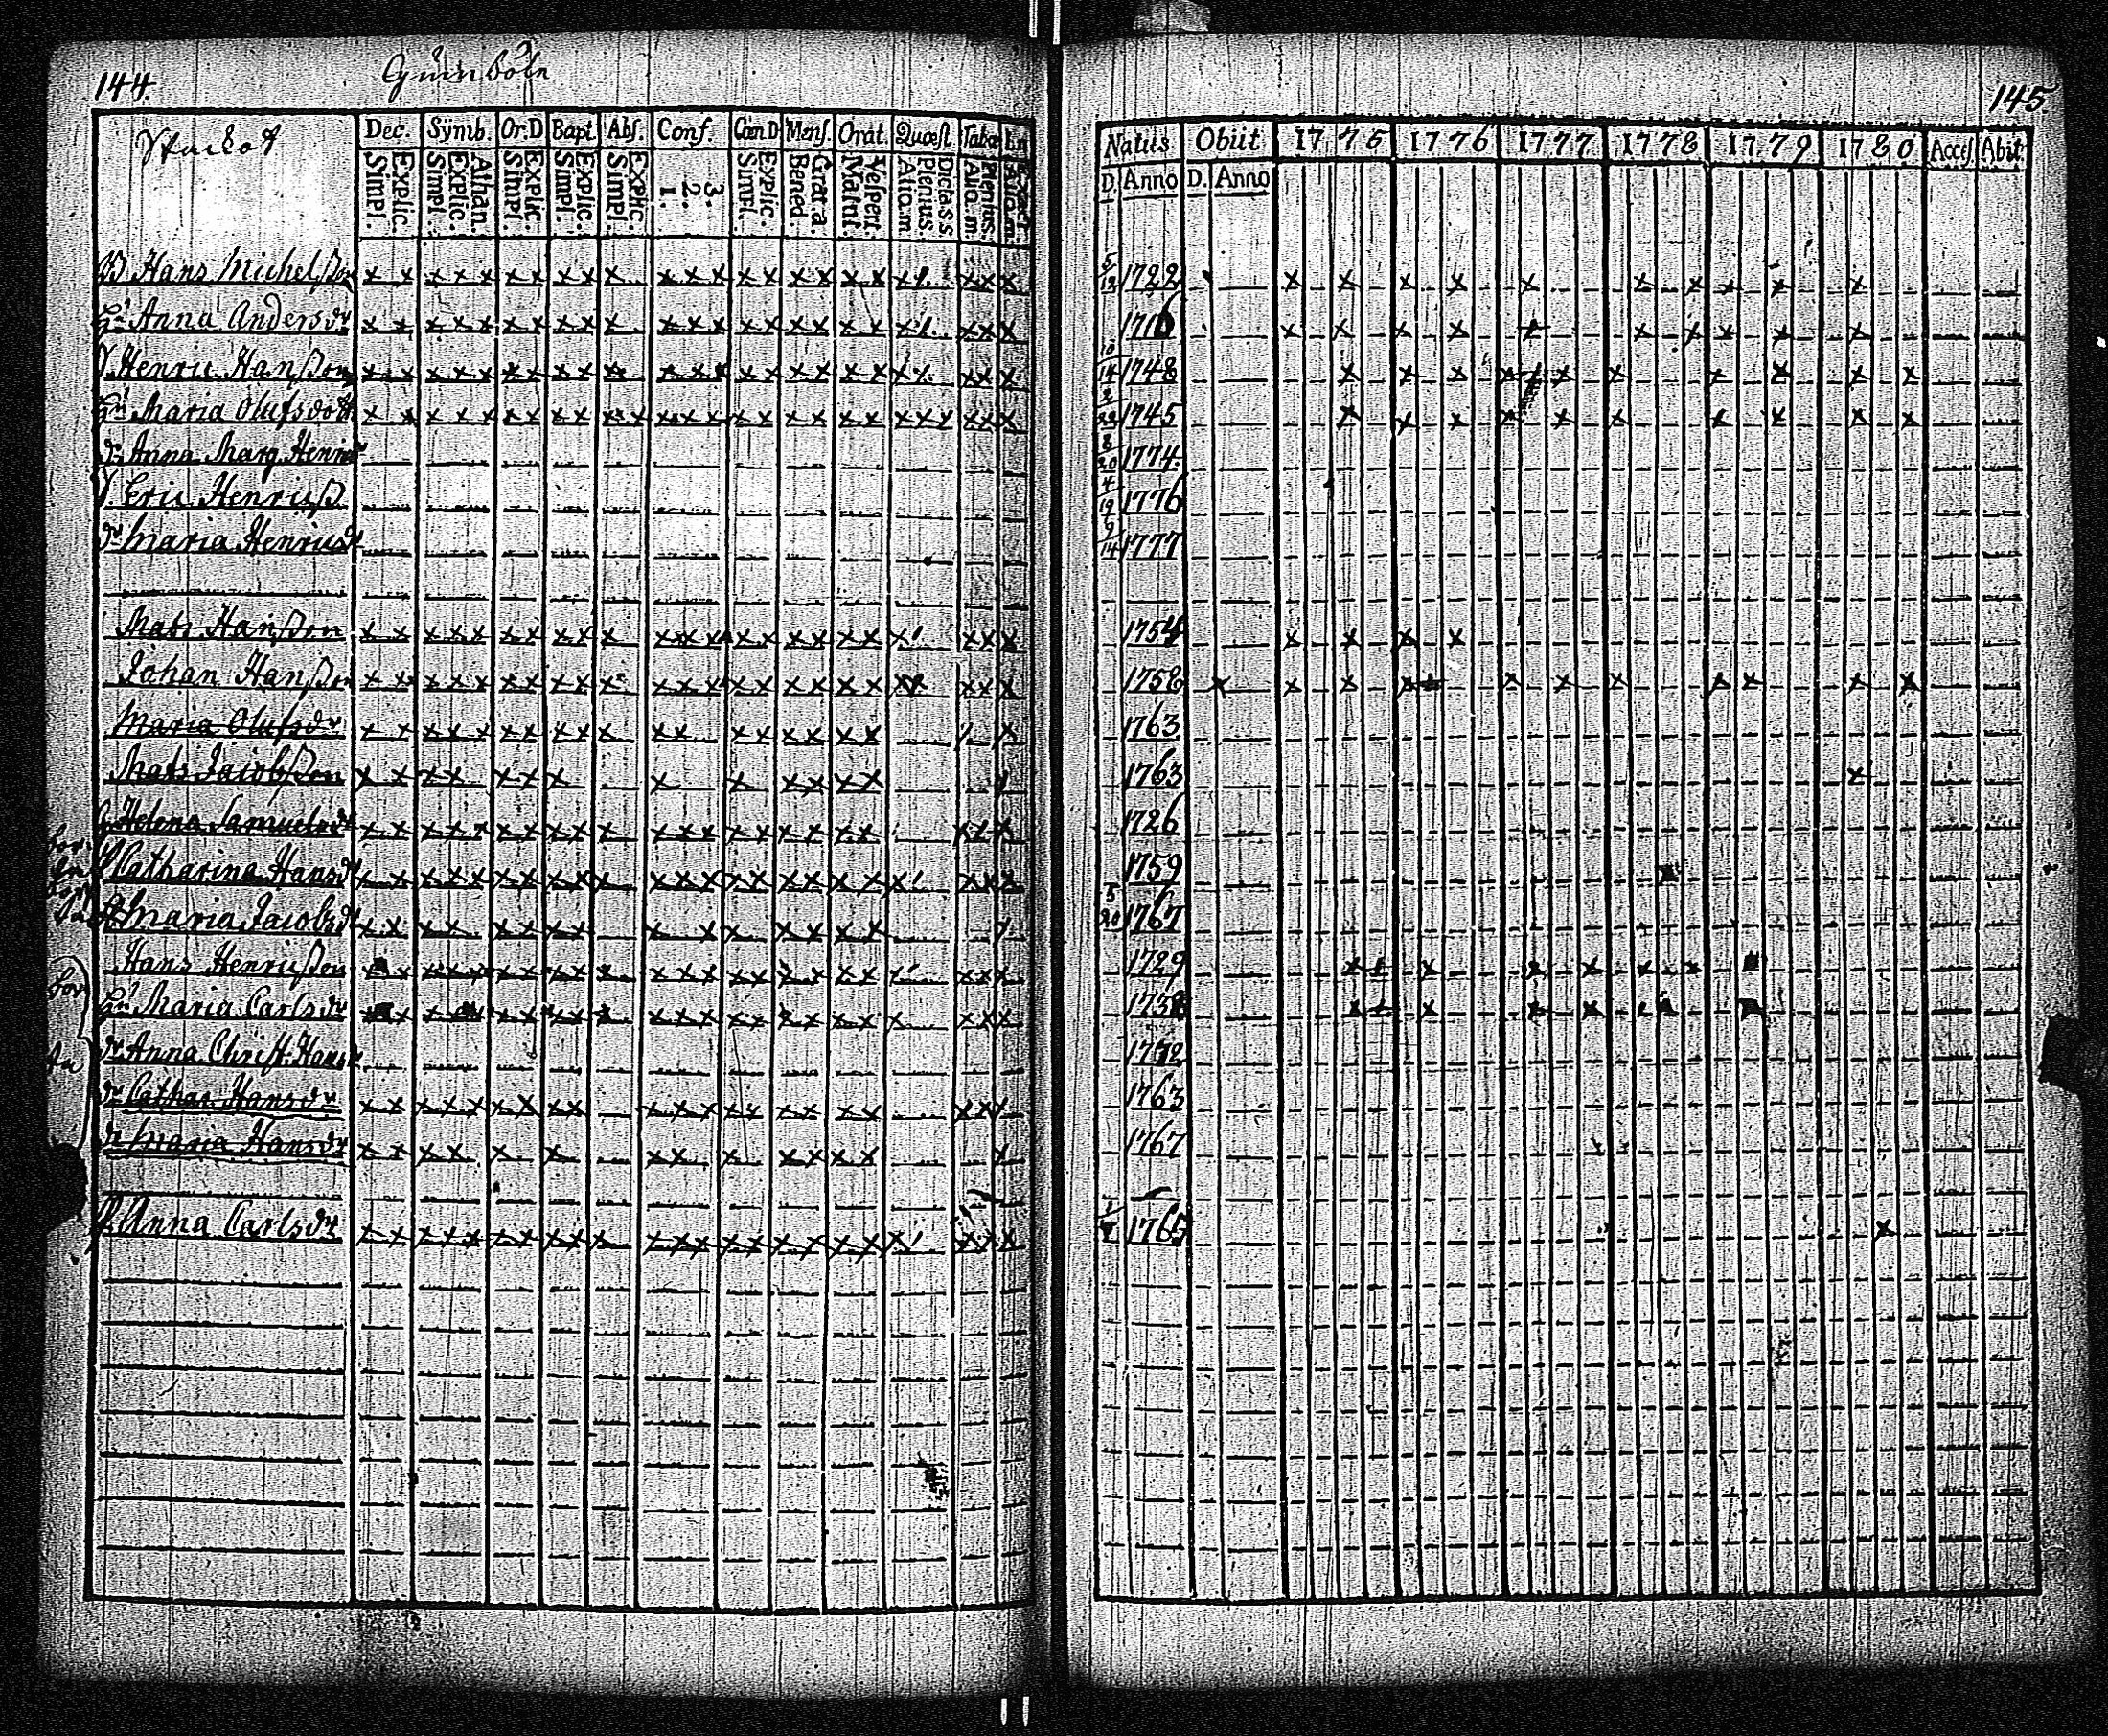 144.
Gumböle
145
Dec. Symb. Or.D Bapt. Abs. Conf. Cœn D Mens. Orat. Quæst Tabæ
Simpl. Explic. Simpl. Explic. Athan. Simpl. Explic. Simpl. Explic. Simpl. Explic. 1. 2. 3. Simpl. Explic. Bened. Grat.a Matut. Vespert. Aliq.m Plenius. Dict.a S.S. Aliq.m Plenius.
Natus Obiit 1775 1776 1777 1778 1779 1780 Access. Abit.
D. Anno D. Anno
B Hans Michelsson 5/12 1722
Hu Anna Andersdr 1716
S Henric Hansson 10/14 1748
Hu Maria Olufsdotr 2/22 1745
dr Anna Marg. Henricsdr 8/20 1774.
S Eric Henricss 4/19 1776
dr Maria Henricsdr 9/14 1777
Mats Hansson 1754
Johan Hansson 1758
Maria Olufsdr 1763
Mats Jacobsson 1763
Helena Samuelsdr 1726
Catharina Hansdr 1759
Maria Jacobsdr 5/20 1767
Hans Henricsson 1729
Hu Maria Carlsdr
dr Anna Christ. Hansdr
dr Cathar. Hansdr 1763
dr Maria Hansdr 1767
Anna Carlsdr